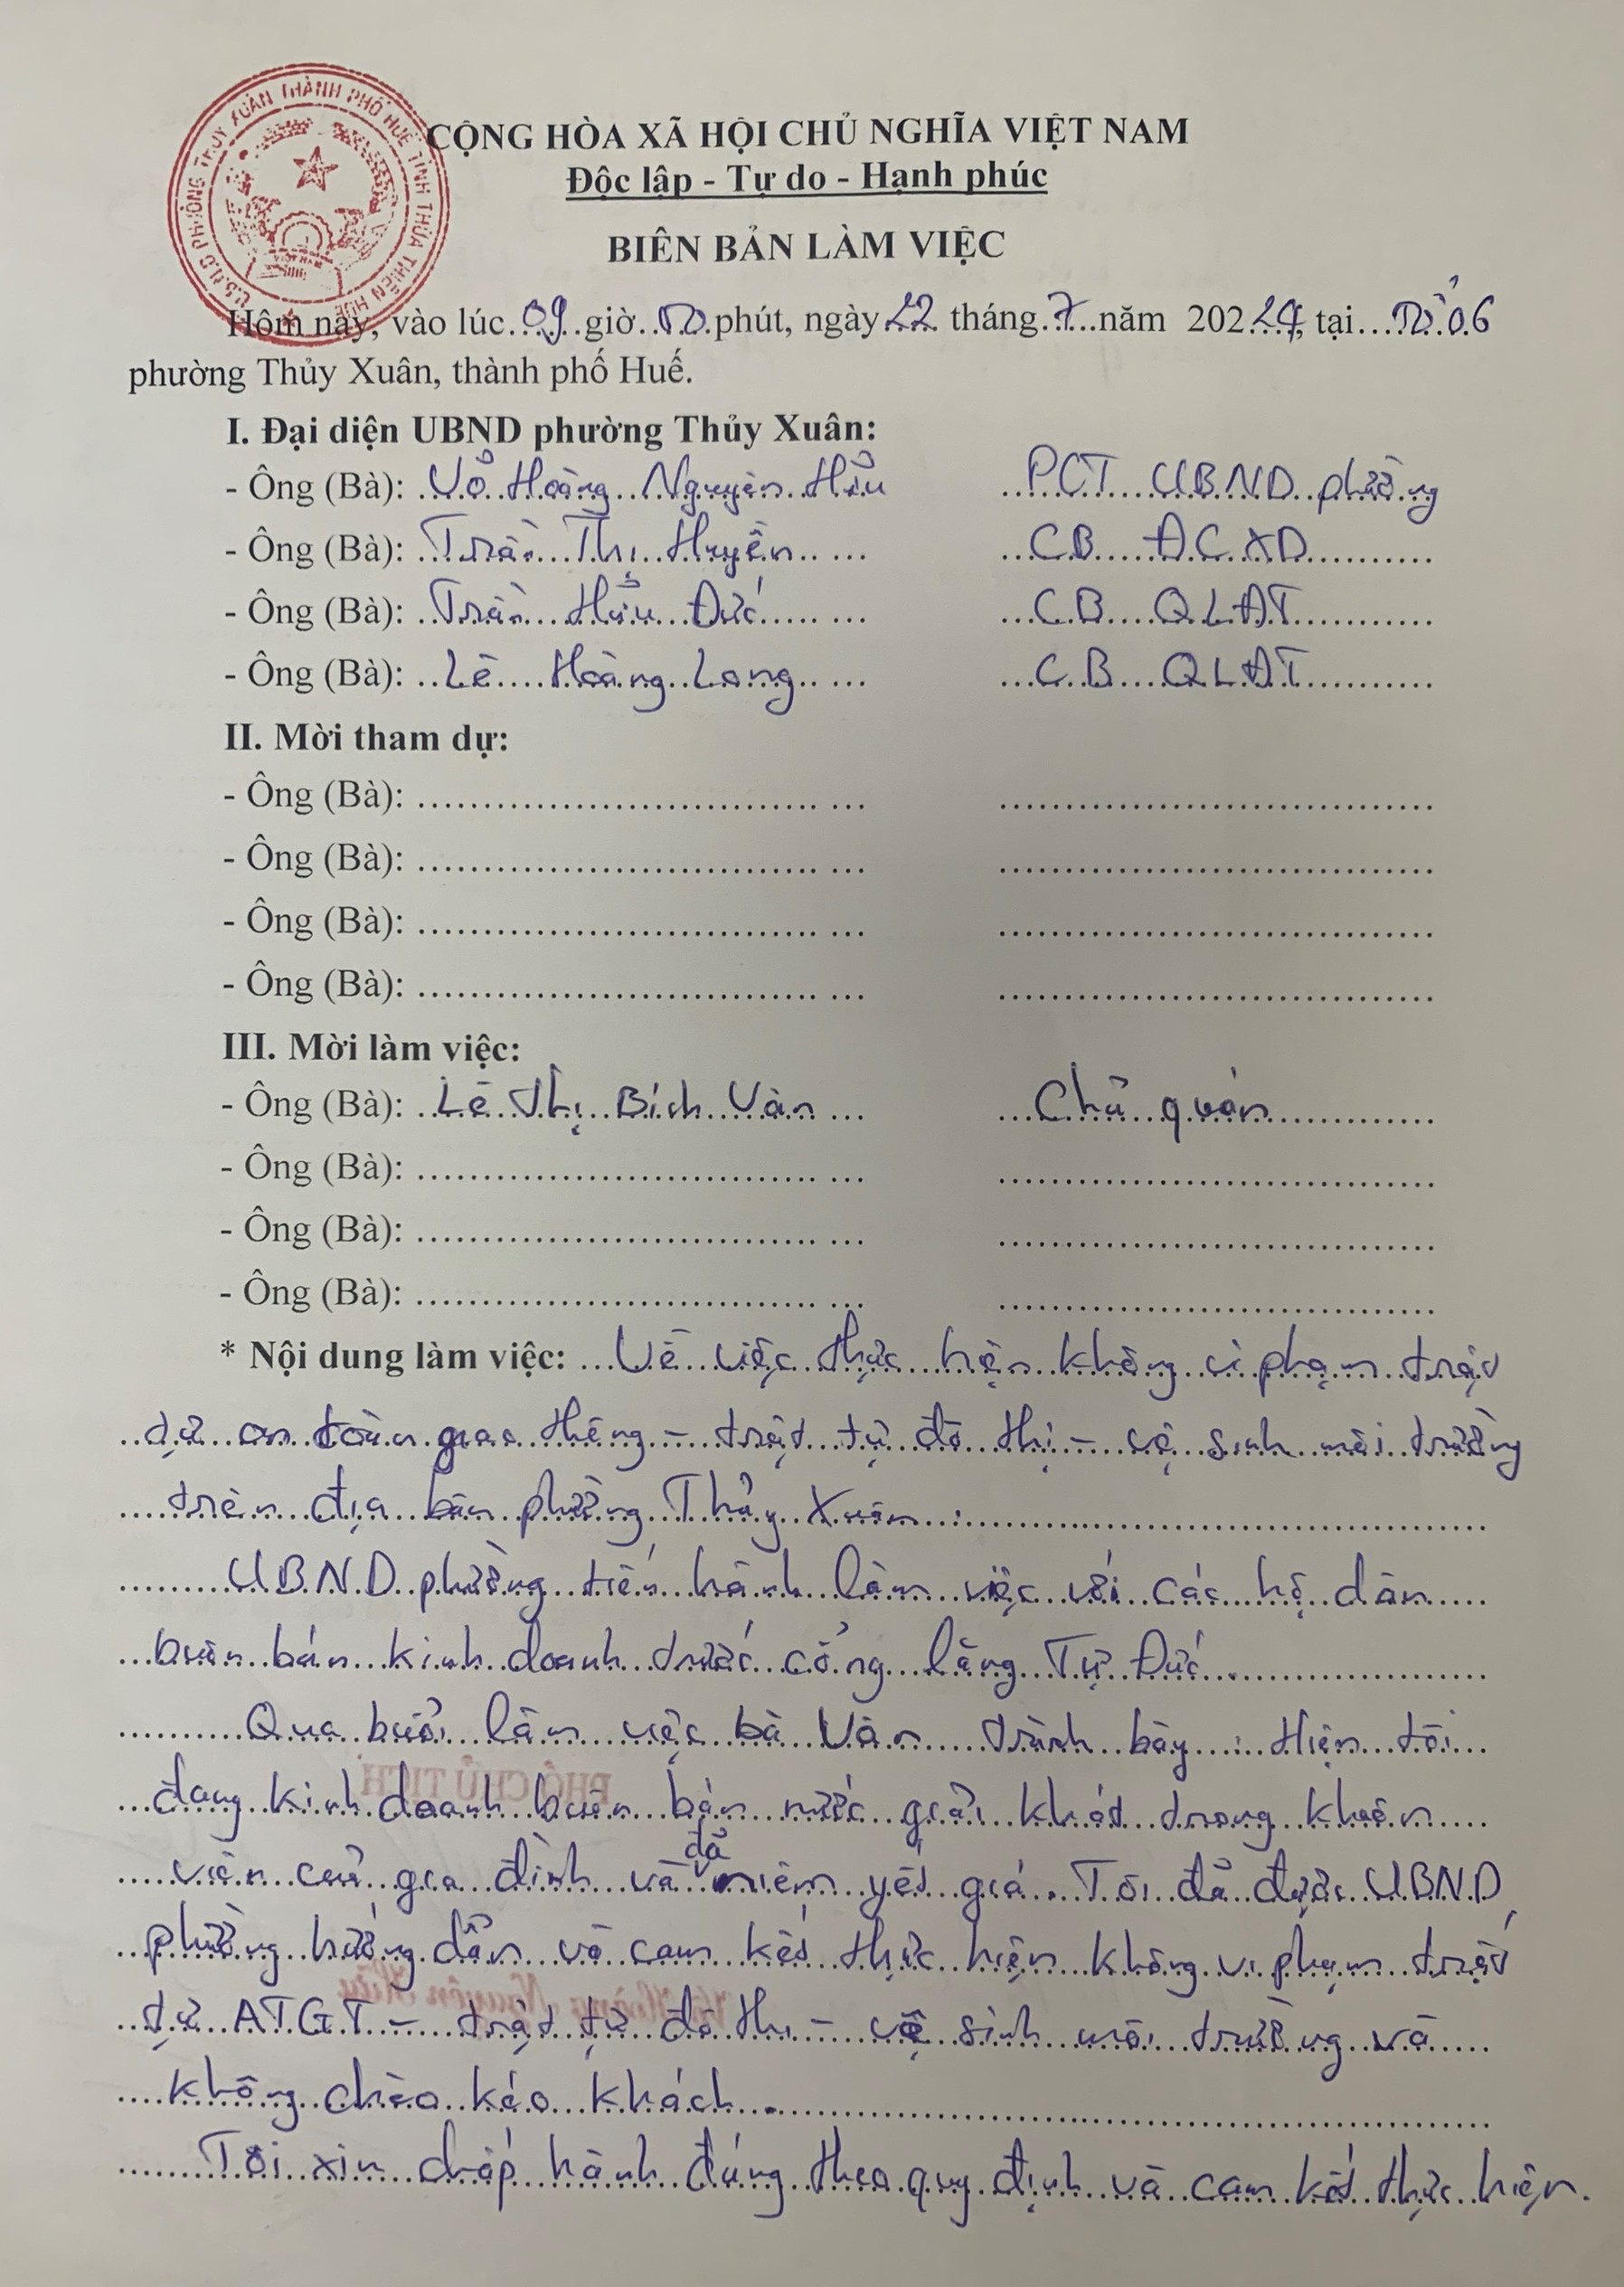 U.B.N.D PHƯỜNG THỦY XUÂN THÀNH PHỐ HUẾ TỈNH THỪA THIÊN HUẾ
VIỆT NAM
CỘNG HÒA XÃ HỘI CHỦ NGHĨA VIỆT NAM
Độc lập - Tự do - Hạnh phúc
BIÊN BẢN LÀM VIỆC
Hôm nay, vào lúc 09 giờ phút, ngày 22 tháng 7 năm 20224, tại 06
phường Thủy Xuân, thành phố Huế.
I. Đại diện UBND phường Thủy Xuân:
- Ông (Bà): Võ Hoàng Nguyên Hữu PCT UBND phường
- Ông (Bà): Trần Thị Huyền CB ĐCXD
- Ông (Bà): Trần Hữu Đức CB QLĐT
- Ông (Bà): Lê Hoàng Long CB QLĐT
II. Mời tham dự:
- Ông (Bà):
- Ông (Bà):
- Ông (Bà):
- Ông (Bà):
III. Mời làm việc:
- Ông (Bà): Lê Thị Bích Vân Chủ quán
- Ông (Bà):
- Ông (Bà):
- Ông (Bà):
* Nội dung làm việc: Về việc thực hiện không vi phạm trật
tự an toàn giao thông - trật tự đô thị - vệ sinh môi trường
trên địa bàn phường Thủy Xuân :
UBND phường tiến hành làm việc với các hộ dân
buôn bán kinh doanh trước cổng lăng Tự Đức.
Qua buổi làm việc bà Vân trình bày : Hiện tôi
đang kinh doanh buôn bán nước giải khát trong khuôn
viên của gia đình và đã niêm yết giá. Tôi đã được UBND
phường hướng dẫn và cam kết thực hiện không vi phạm trật
tự ATGT - trật tự đô thị - vệ sinh môi trường và
không chèo kéo khách.
Tôi xin chấp hành đúng theo quy định và cam kết thực hiện.